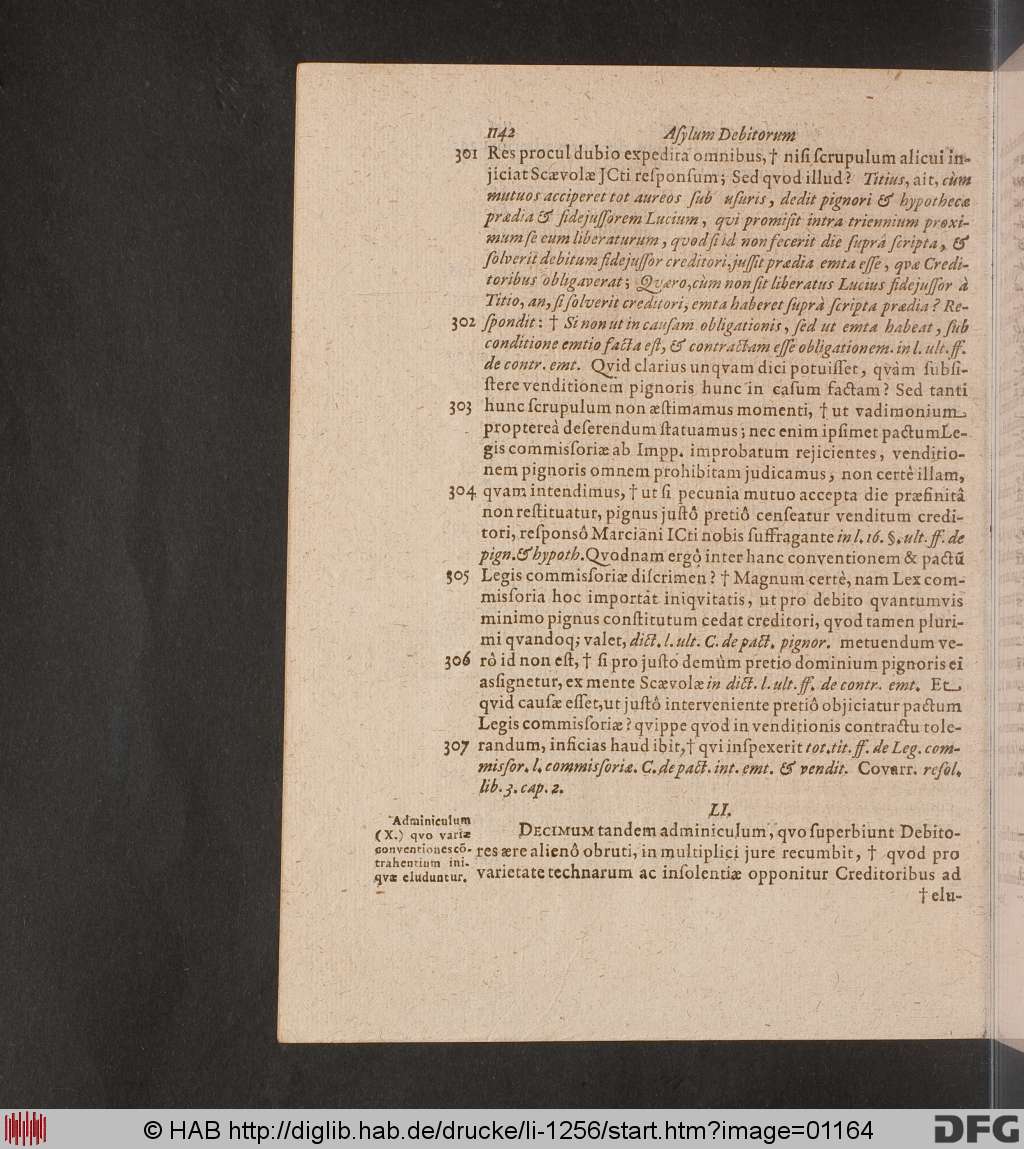 1142 Aſylum Debitorum
301 Res procul dubio expedita omnibus, † niſi ſcrupulum alicui in-
jiciat Scævolæ JCti reſponſum; Sed qvod illud? Titius, ait, cùm
mutuos acciperet tot aureos ſub uſuris, dedit pignori & hypothecæ
prædia & fidejuſſorem Lucium, qvi promiſit intra triennium proxi-
mum ſe eum liberaturum, qvod ſi id non fecerit die ſuprâ ſcripta, &
ſolverit debitum fidejuſſor creditori, juſſit prædia emta eſſe, qvæ Credi-
toribus obligaverat; Qværo, cùm non ſit liberatus Lucius fidejuſſor à
Titio, an, ſi ſolverit creditori, emta haberet ſuprà ſcripta prædia? Re-
302 ſpondit: † Si non ut in cauſam obligationis, ſed ut emta habeat, ſub
conditione emtio facta eſt, & contractam eſſe obligationem. in l. ult. ff.
de contr. emt. Qvid clarius unqvam dici potuiſſet, qvàm ſubſi-
ſtere venditionem pignoris hunc in caſum factam? Sed tanti
303 hunc ſcrupulum non æſtimamus momenti, † ut vadimonium
proptereà deſerendum ſtatuamus; nec enim ipſimet pactum Le-
gis commiſſoriæ ab Impp. improbatum rejicientes, venditio-
nem pignoris omnem prohibitam judicamus, non certè illam,
304 qvam intendimus, † ut ſi pecunia mutuo accepta die præfinitâ
non reſtituatur, pignus juſtô pretiô cenſeatur venditum credi-
tori, reſponsô Marciani ICti nobis ſuffragante in l. 16. §. ult. ff. de
pign. & hypoth. Qvodnam ergô inter hanc conventionem & pactũ
305 Legis commiſſoriæ diſcrimen? † Magnum certè, nam Lex com-
miſſoria hoc importat iniqvitatis, ut pro debito qvantumvis
minimo pignus conſtitutum cedat creditori, qvod tamen pluri-
mi qvandoq; valet, dict. l. ult. C. de pact. pignor. metuendum ve-
306 rô id non eſt, † ſi pro juſto demùm pretio dominium pignoris ei
aſſignetur, ex mente Scævolæ in dict. l. ult. ff. de contr. emt. Et
qvid cauſæ eſſet, ut juſtô interveniente pretiô objiciatur pactum
Legis commiſſoriæ? qvippe qvod in venditionis contractu tole-
307 randum, inficias haud ibit, † qvi inſpexerit tot. tit. ff. de Leg. com-
miſſor. l. commiſſoriæ. C. de pact. int. emt. & vendit. Covarr. reſol.
lib. 3. cap. 2.
LI.
Adminiculum
(X.) qvo variæ
conventiones cõ-
trahentium ini-
qvæ eluduntur.
DECIMUM tandem adminiculum, qvo ſuperbiunt Debito-
res ære alienô obruti, in multiplici jure recumbit, † qvod pro
varietate technarum ac inſolentiæ opponitur Creditoribus ad
† elu-
© HAB http://diglib.hab.de/drucke/li-1256/start.htm?image=01164
DFG